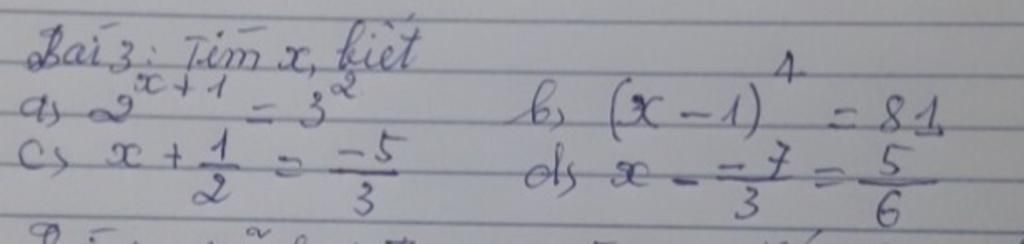 Bài 3: Tìm x, biết
a, 2^{x+1} = 3^2 b, (x - 1)^4 = 81
c, x + 1/2 = -5/3 d, x - -7/3 = 5/6